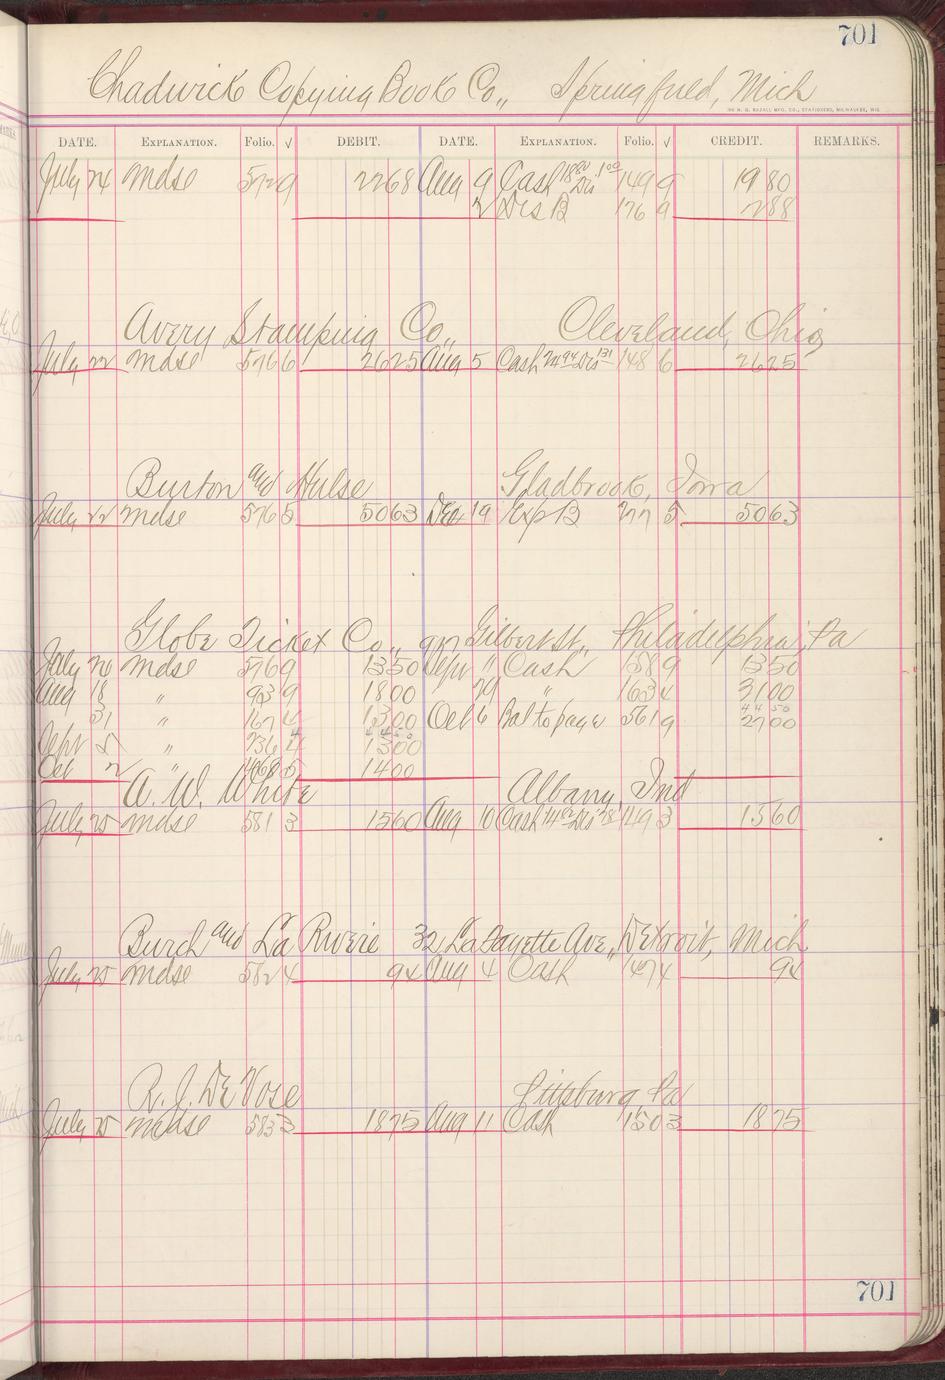 701
Chadwick Copying Book Co., Springfield, Mich
DATE. EXPLANATION. Folio. √ DEBIT. DATE. EXPLANATION. Folio. √ CREDIT. REMARKS.
July 24 Mdse 572 9 2268 Aug 9 Cash 18 80 Dis 1 00 149 9 1980
2 Dis B 176 9 288
Avery Stamping Co., Cleveland, Ohio
July 22 Mdse 576 6 2625 Aug 5 Cash 24 94 Dis 1 31 148 6 2625
Burton and Hulse Gladbrook, Iowa
July 22 Mdse 576 5 5063 Dec 19 Exp B 277 5 5063
Globe Ticket Co., Gilbert St., Philadelphia, Pa
July 26 Mdse 576 9 1350 Sept 11 Cash 158 9 1350
Aug 18 " 93 9 1800 29 " 163 4 3100
31 " 167 4 1300 Oct 6 Bal to page 561 9 44 50 2700
Sept 5 " 236 4 44 50 1300
Oct 2 " 468 5 1400
A. W. White Albany, Ind
July 25 Mdse 581 3 1560 Aug 10 Cash 14 82 Dis 78 149 3 1560
Burch and La Riviere 32 LaFayette Ave., Detroit, Mich
July 25 Mdse 582 4 94 Aug 4 Cash 147 4 94
R. J. DeVose Pittsburg Pa
July 25 Mdse 583 3 1875 Aug 11 Cash 150 3 1875
701